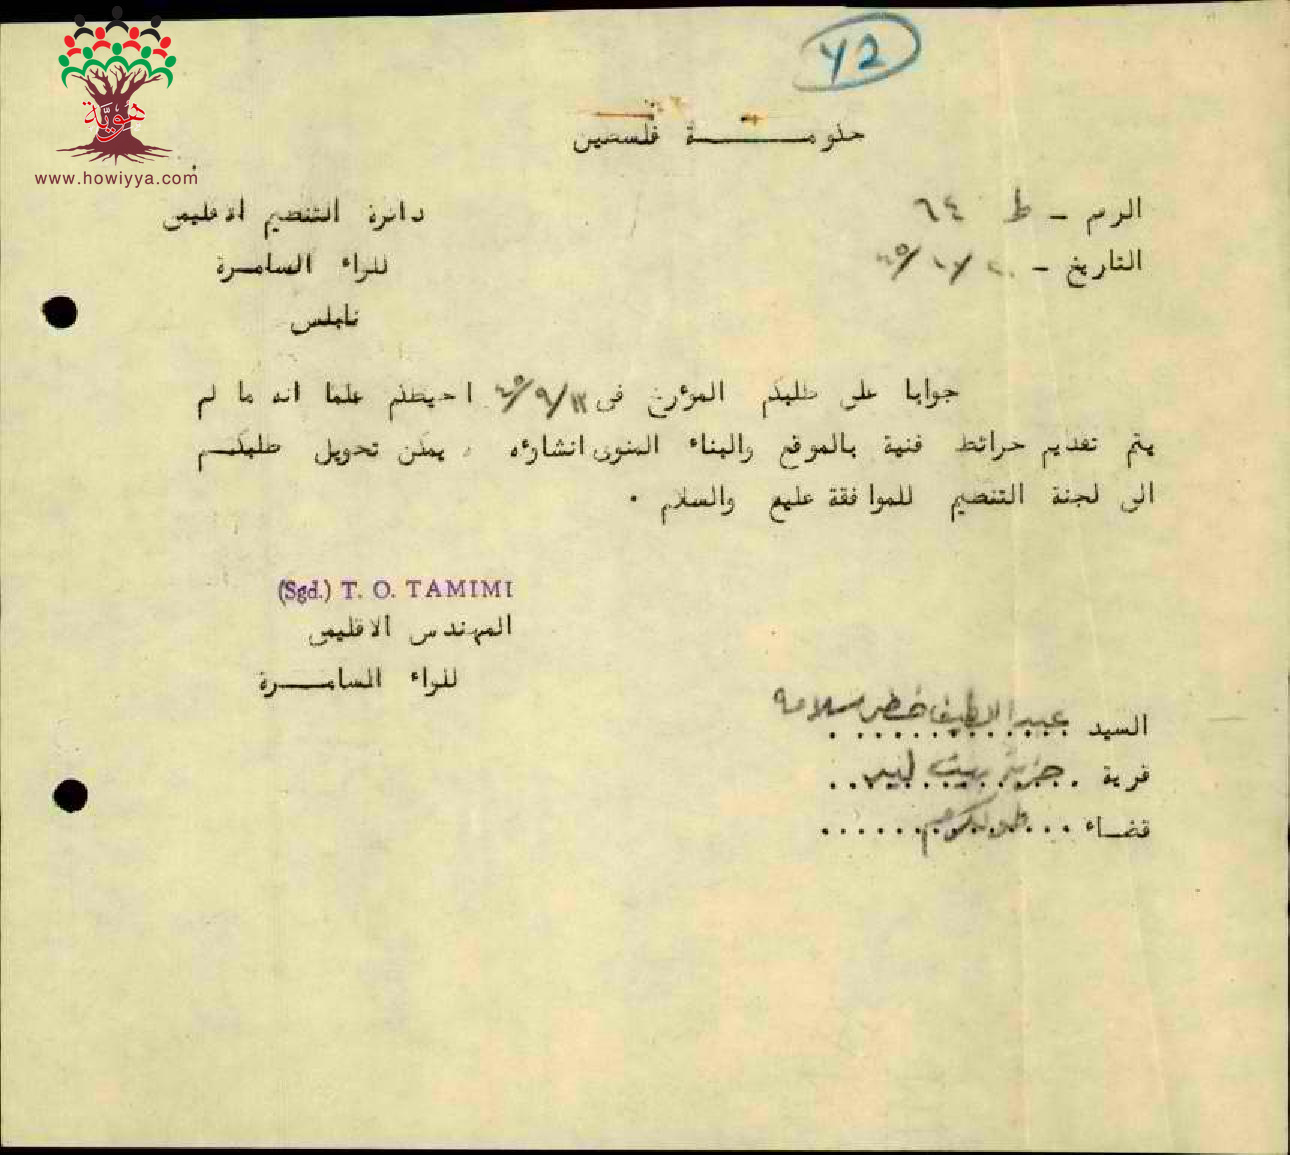 42
هويّة
www.howiyya.com
حكومـــــة فلسطين
الرقم - ط ٦٤
دائرة التنظيم الاقليمي
التاريخ -
للواء السامـرة
نابلس
جوابا على طلبكم المؤرخ في ١٢/٩/٤٥ احيطكم علما انه ما لم
يتم تقديم خرائط فنية بالموقع والبناء المنوى انشاؤه ، يمكن تحويل طلبكـم
الى لجنة التنظيم للموافقة عليه والسلام .
(Sgd.) T. O. TAMIMI
المهندس الاقليمي
للواء السامـــرة
السيد عبد اللطيف خضر سلامه
قرية خربة بيت ليد
قضـاء طولكرم